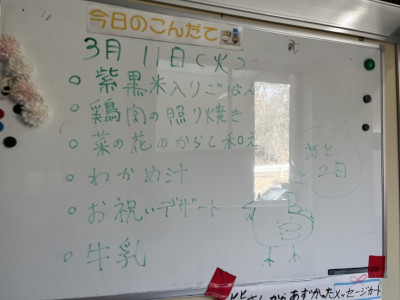 今日のこんだて
3月11日(火)
紫黒米入りごはん
鶏肉の照り焼き
菜の花のからし和え
わかめ汁
お祝いデザート
牛乳
あと
2日
あずかったメッセージカード